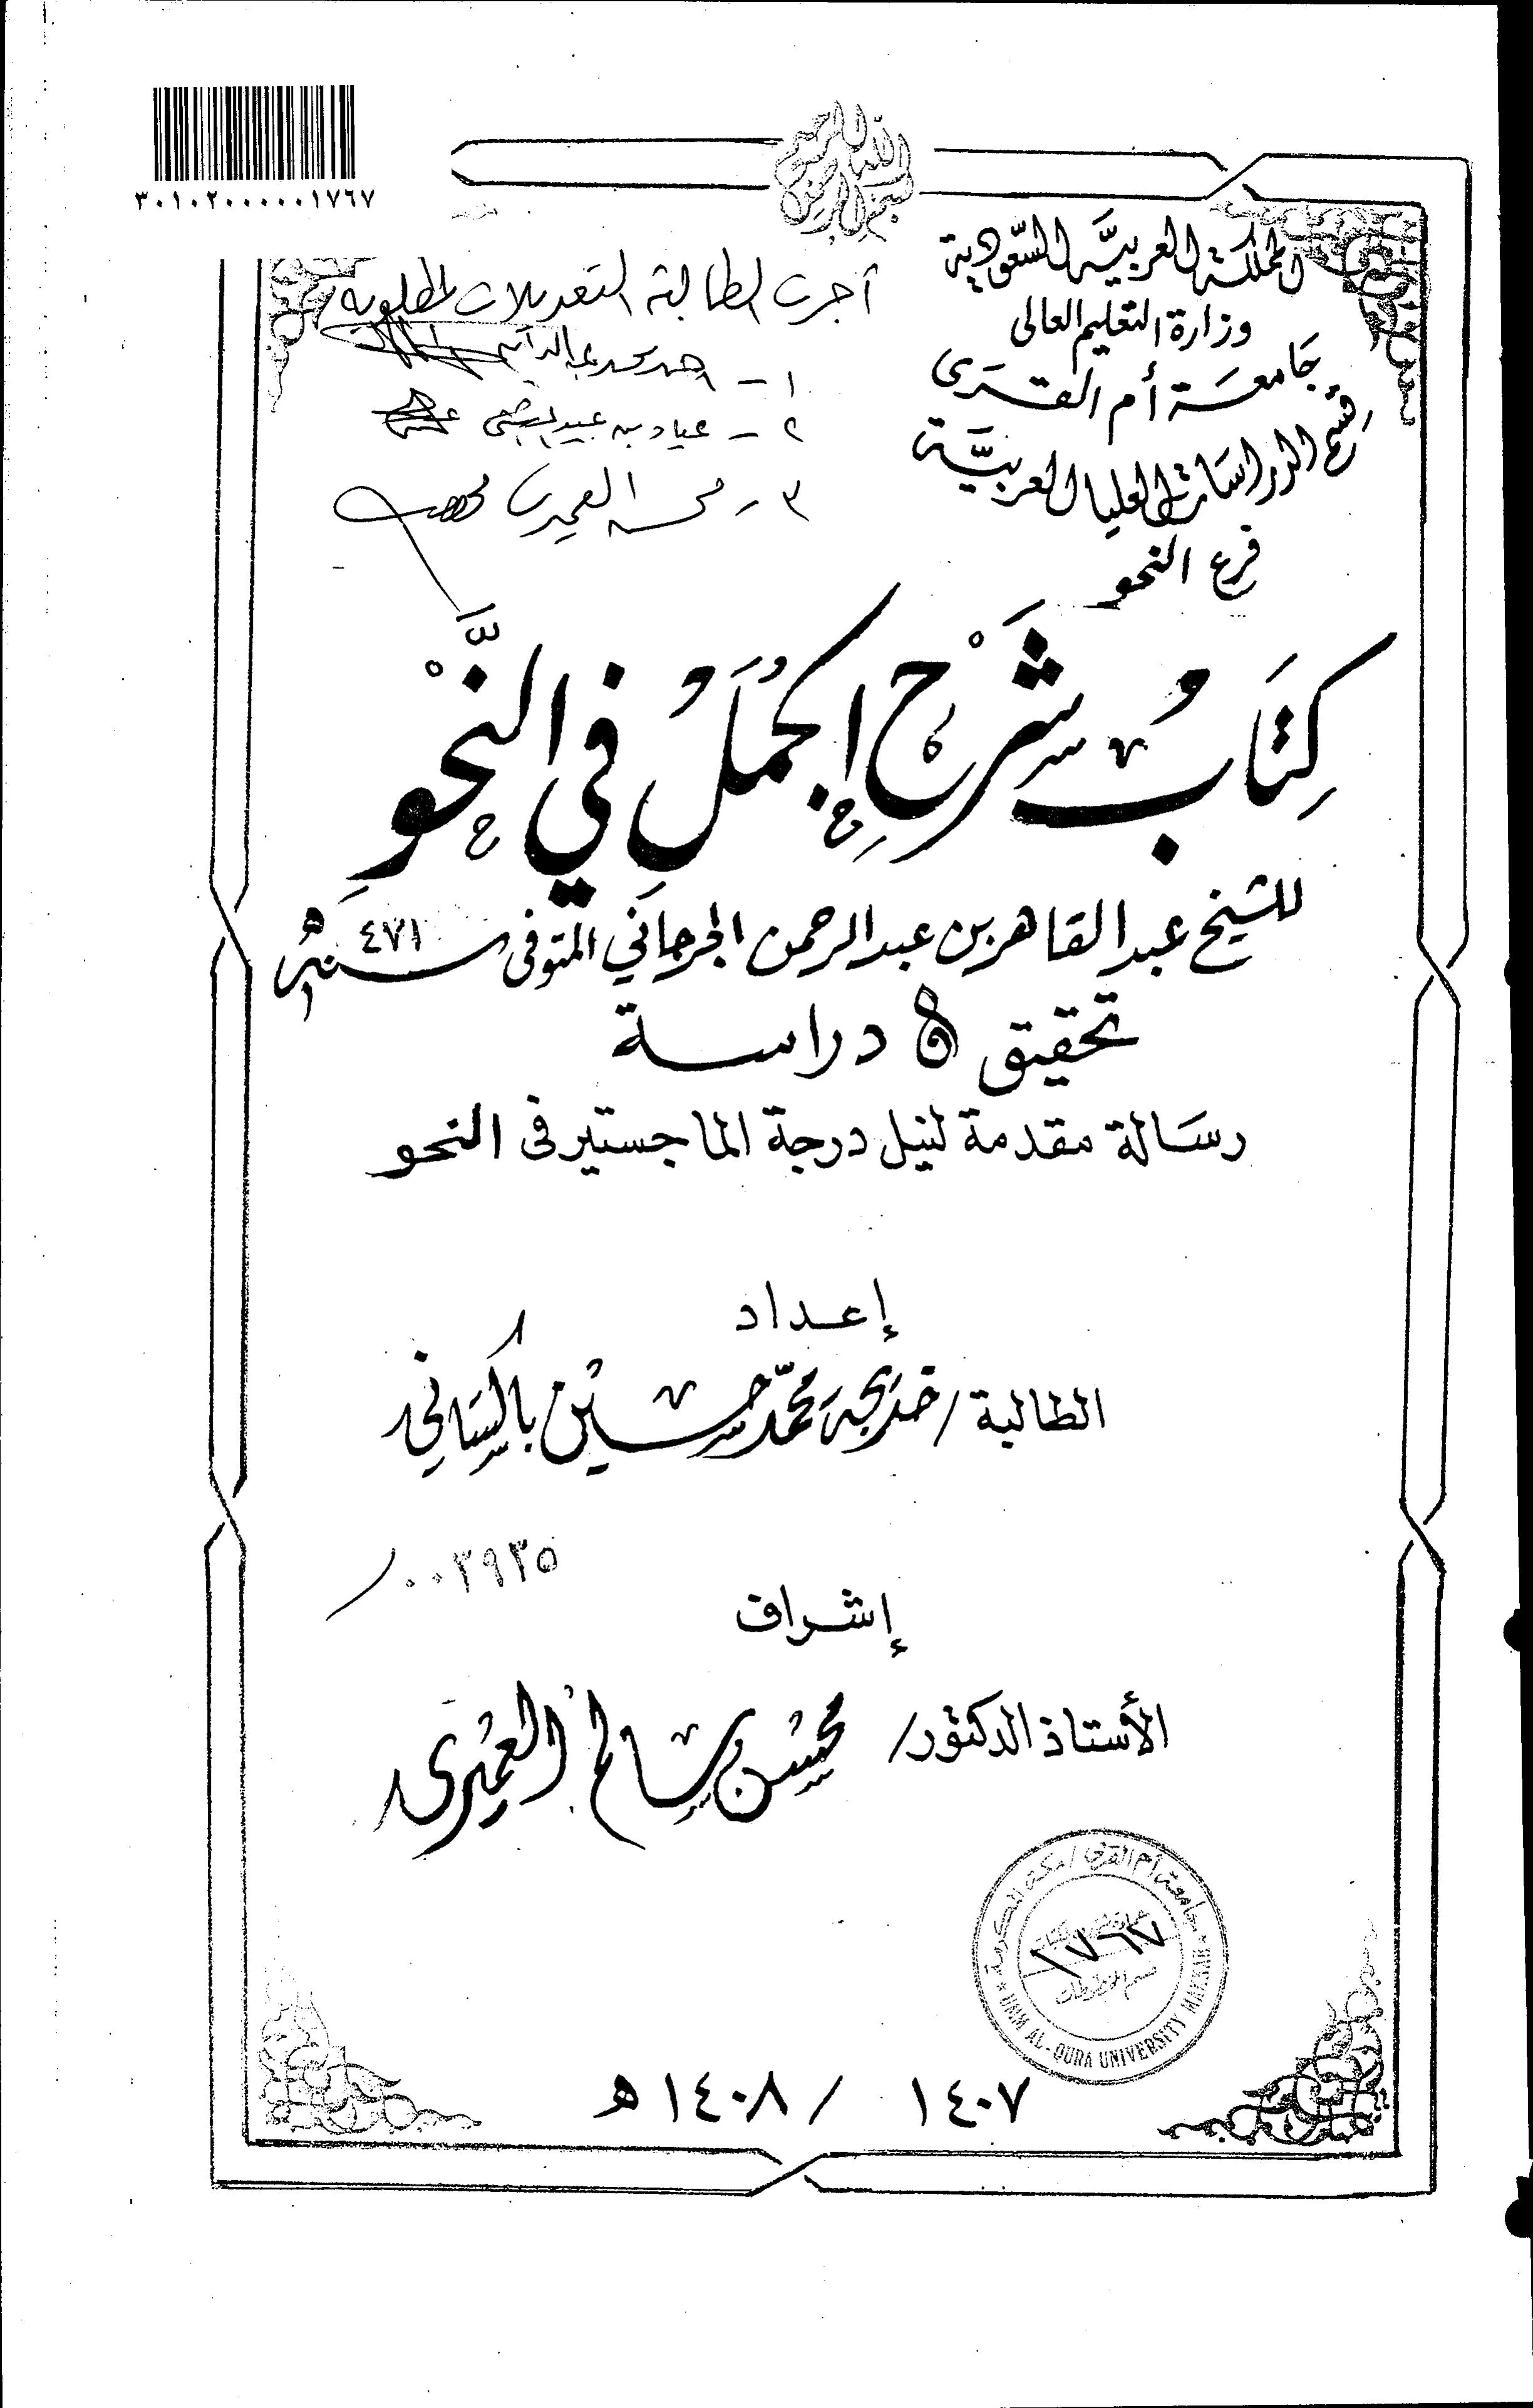 ٣٠١٠٢٠٠٠٠٠١٧٦٧
بسم الله الرحمن الرحيم
المملكة العربيَّة السّعوديّة
وزارة التعليم العالى
جَامعَة أم القرَى
قسم الدراسَات العليا العربيَّة
فرع النحو
أجرت الطالبة التعديلات المطلوبة
١ - أحمد
٢ - عياد بن عيد الثبيتي
٣ - محسن العميري
كِتَابُ شَرْحِ الجُمَلُ في النَّحْوِ
للشيخ عبد القاهر بن عبد الرحمن الجرجاني المتوفى سنة ٤٧١ هـ
تحقيق و دراسة
رسَالة مقدمة لنيل درجة الماجستير فى النحو
إعداد
الطالبة / خديجَة محمّد حسَين باكستاني
٠٠٣٩٣٥ /
إشراف
الأستاذ الدكتور / محسْن بن سَالم العمْيرى
جامعة أم القرى / مكة المكرمة
١٧٦٧
UMM AL-QURA UNIVERSITY MAKKAH
١٤٠٧ / ١٤٠٨ هـ